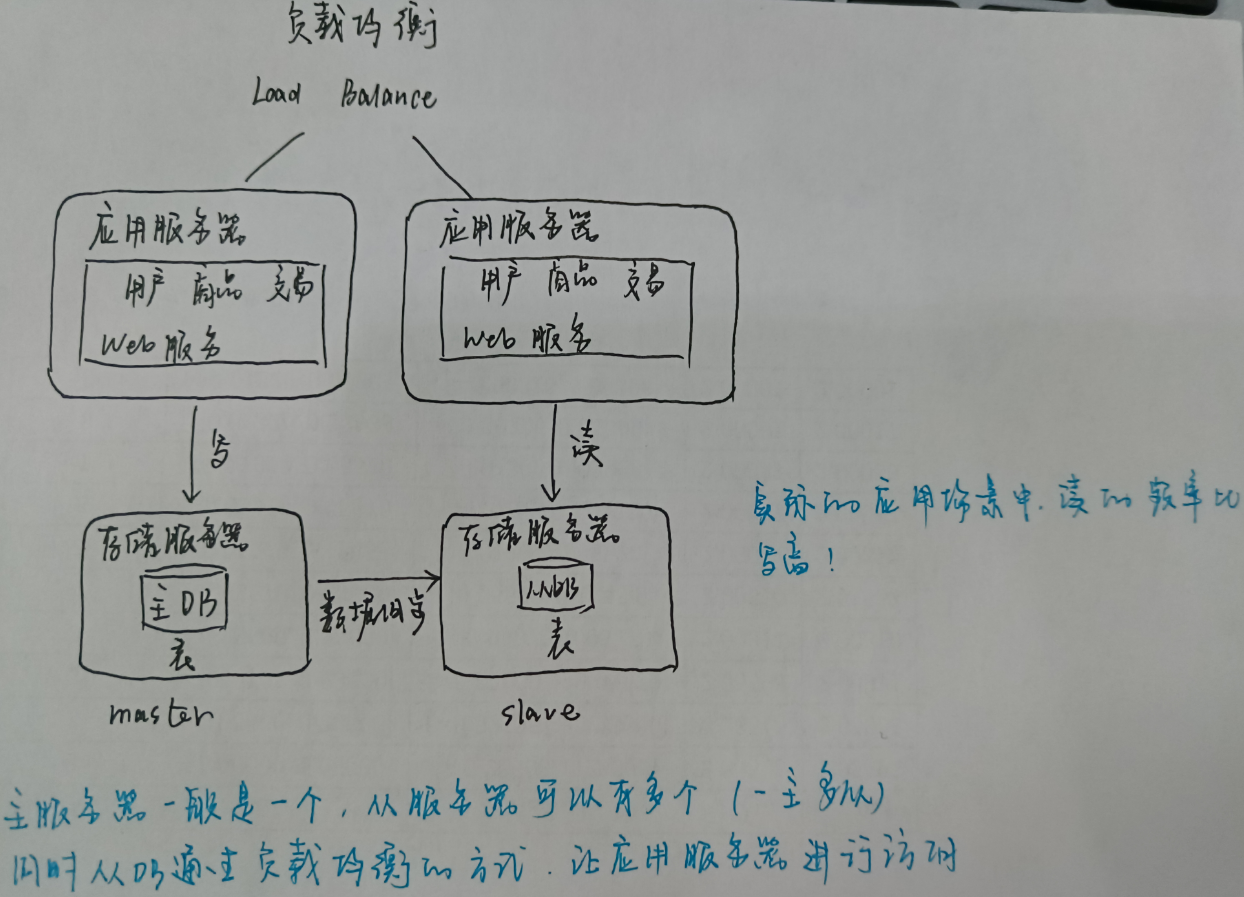 负载均衡
Load Balance
应用服务器
用户 商品 交易
Web服务
应用服务器
用户 商品 交易
Web服务
写
读
存储服务器
主DB
表
master
数据同步
存储服务器
从DB
表
slave
实际的应用场景中，读的频率比
写高！
主服务器一般是一个，从服务器可以有多个（一主多从）
同时从DB通过负载均衡的方式，让应用服务器进行访问